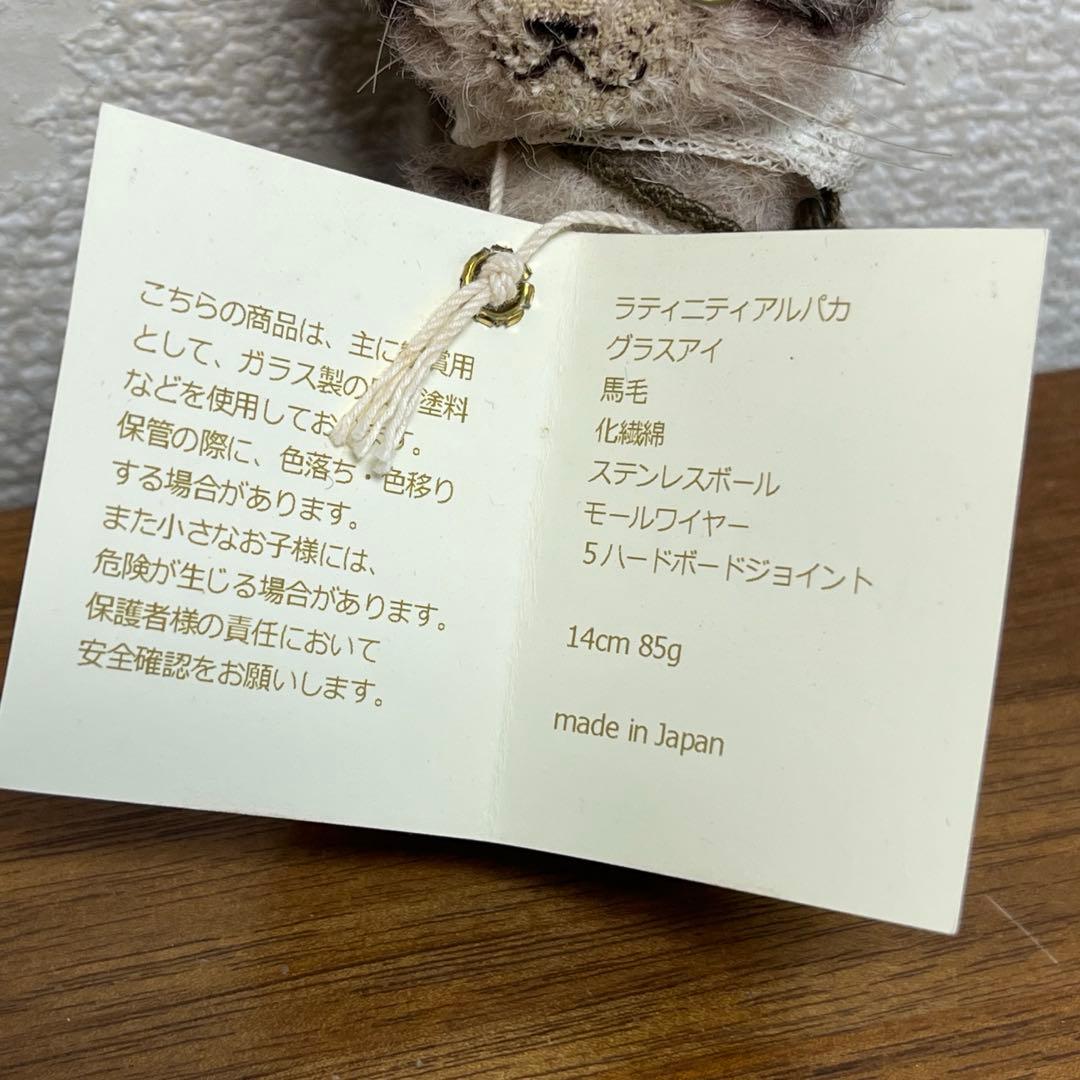 こちらの商品は、主に賞用
として、ガラス製の塗料
などを使用しております。
保管の際に、色落ち・色移り
する場合があります。
また小さなお子様には、
危険が生じる場合があります。
保護者様の責任において
安全確認をお願いします。
ラティニティアルパカ
グラスアイ
馬毛
化繊綿
ステンレスボール
モールワイヤー
5ハードボードジョイント
14cm 85g
made in Japan